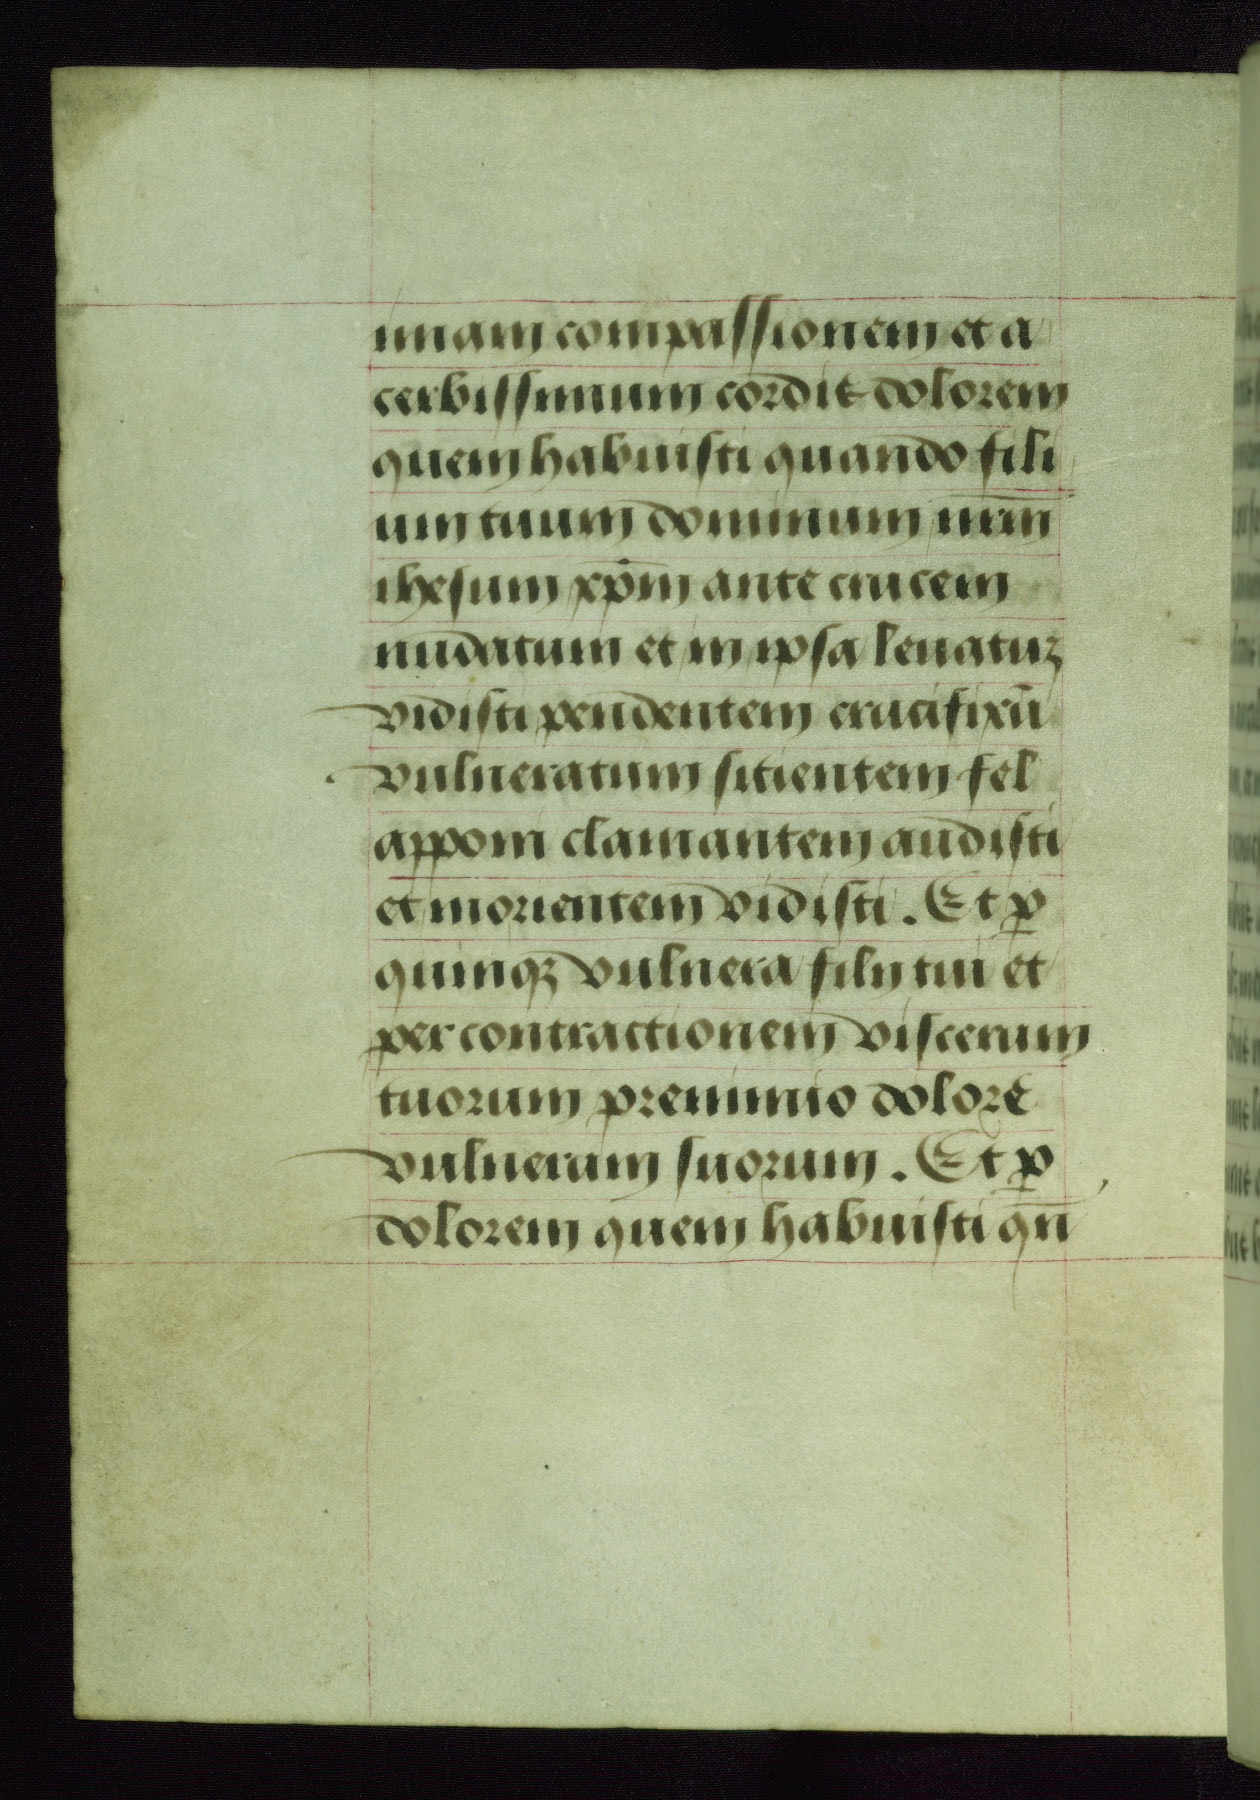 imam compassionem et a
cerbissimum cordis dolorem
quem habuisti quando fili
um tuum dominum nr̄m
ihesum xp̄m ante crucem
nudatum et in ipsa leuatuꝫ
vidisti pendentem crucifixū
vulneratum sitientem fel
apponi clamantem audisti
et morientem vidisti. Et ꝑ
quinqꝫ vulnera filij tui et
per contractionem viscerum
tuorum pre nimio dolore
vulneram suorum. Et ꝑ
dolorem quem habuisti qn̄